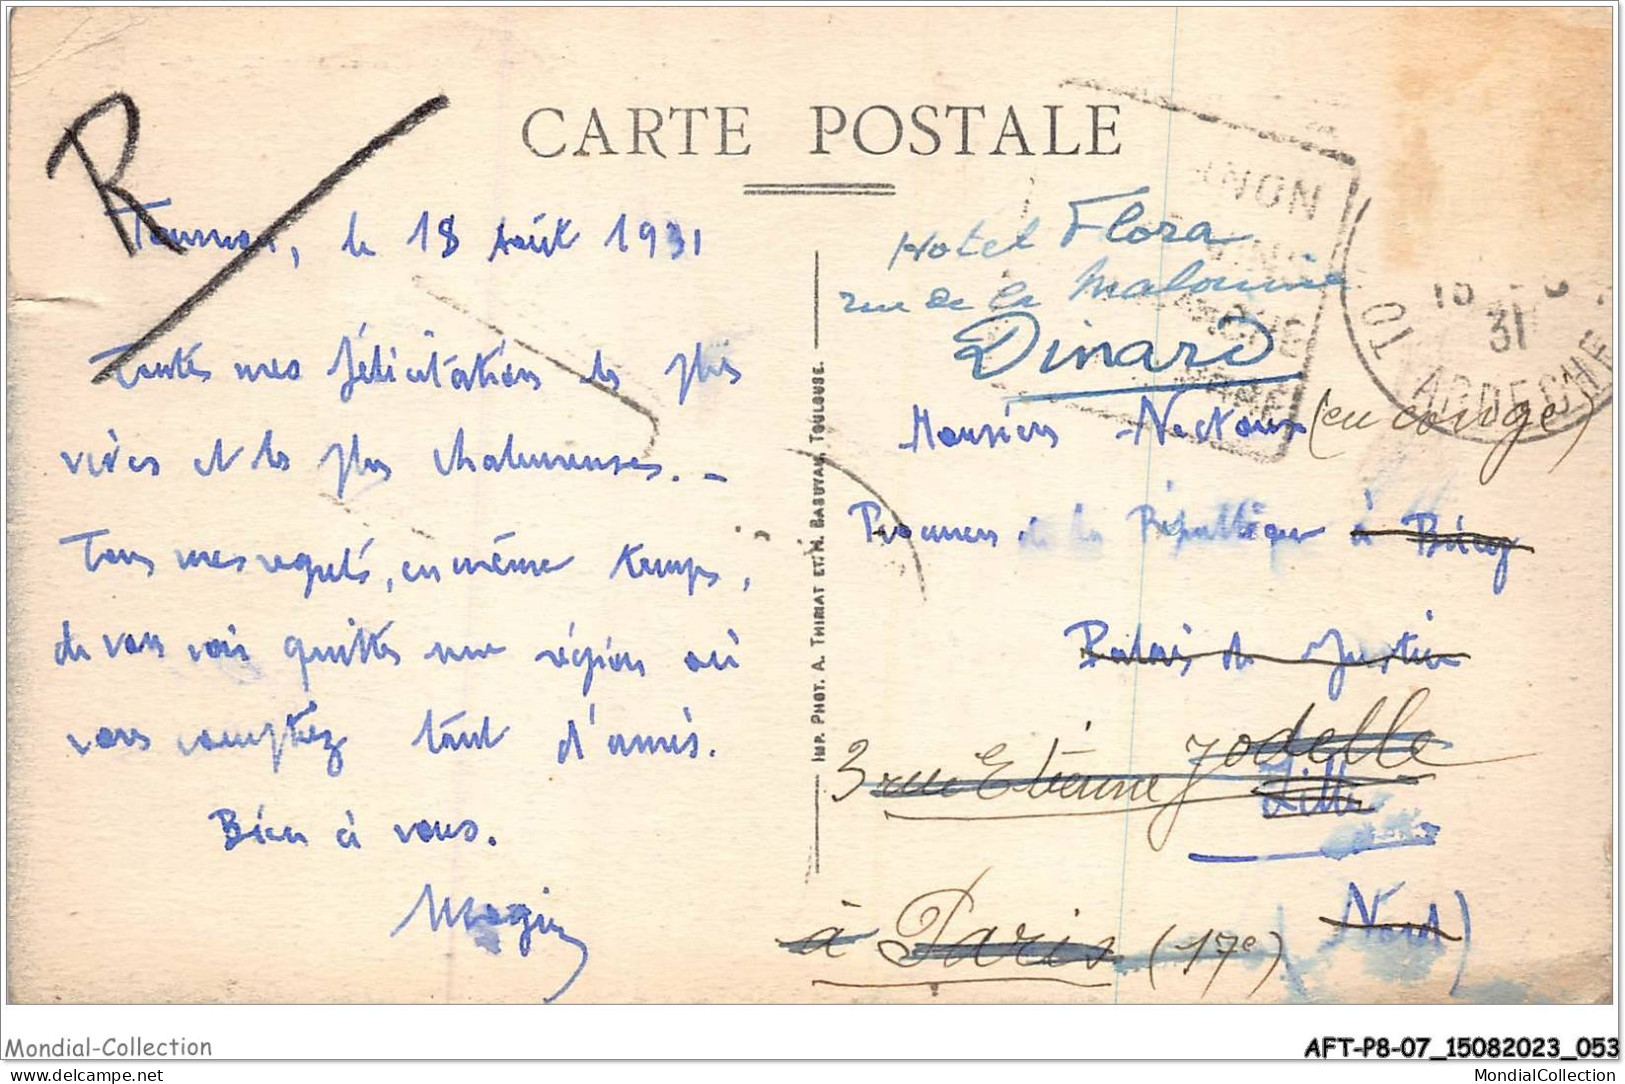 CARTE POSTALE
R
Tournon, le 18 Août 1931
Toutes mes félicitations les plus
vives et les plus chaleureuses. -
Tous mes regrets, en même temps,
de vous voir quitter une région où
vous comptez tant d'amis.
Bien à vous.
IMP. PHOT. A. THIRIAT ET. M. BASUYAU, TOULOUSE.
Hotel Flora
rue de la Malouine
Dinard
Monsieur (en congé)
Procureur de la République à
Palais de Justice
3 rue Etienne Jodelle
Lille
à Paris (17e)
Nord)
NON
31
TO
ARDECHE
Mondial-Collection
AFT-P8-07_15082023_053
mondial-collection
MondialCollection